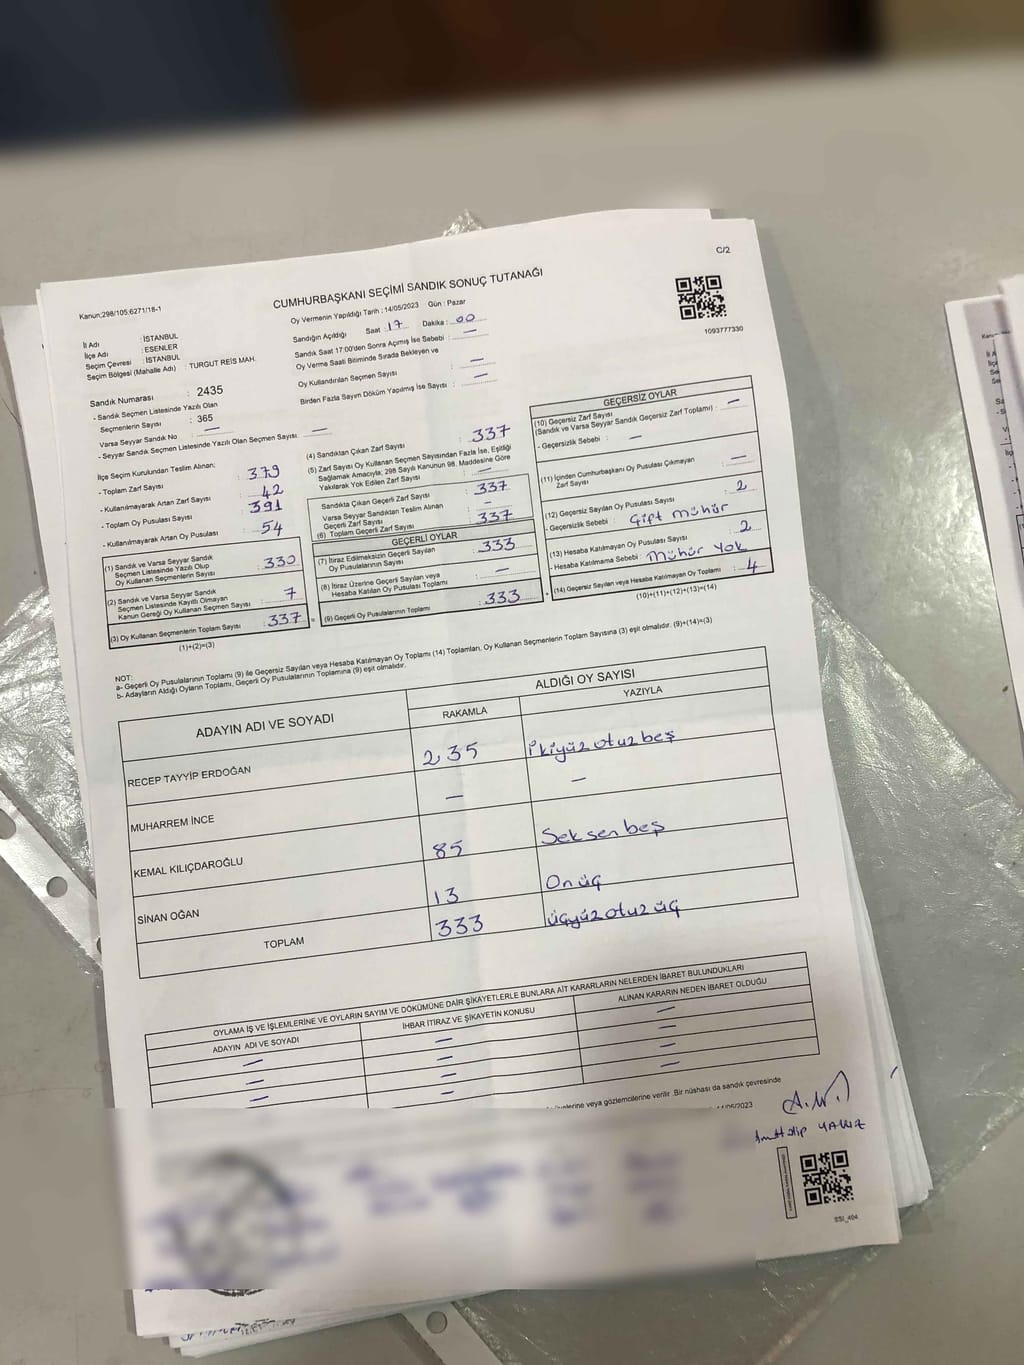 C/2
Kanun:298/105.6271/18-1
CUMHURBAŞKANI SEÇİMİ SANDIK SONUÇ TUTANAĞI
1093777330
İl Adı : İSTANBUL
İlçe Adı : ESENLER
Seçim Çevresi : İSTANBUL
Seçim Bölgesi (Mahalle Adı) : TURGUT REİS MAH.
Sandık Numarası : 2435
- Sandık Seçmen Listesinde Yazılı Olan
Seçmenlerin Sayısı : 365
Varsa Seyyar Sandık No : —
- Seyyar Sandık Seçmen Listesinde Yazılı Olan Seçmen Sayısı: —
Oy Vermenin Yapıldığı Tarih : 14/05/2023 Gün : Pazar
Sandığın Açıldığı Saat : 17 Dakika : 00
Sandık Saat 17:00'den Sonra Açılmış İse Sebebi : —
Oy Verme Saati Bitiminde Sırada Bekleyen ve
Oy Kullandırılan Seçmen Sayısı : —
Birden Fazla Sayım Döküm Yapılmış İse Sayısı : —
İlçe Seçim Kurulundan Teslim Alınan:
- Toplam Zarf Sayısı : 379
- Kullanılmayarak Artan Zarf Sayısı : 42
- Toplam Oy Pusulası Sayısı : 391
- Kullanılmayarak Artan Oy Pusulası : 54
(1) Sandık ve Varsa Seyyar Sandık
Seçmen Listesinde Yazılı Olup
Oy Kullanan Seçmenlerin Sayısı : 330
(2) Sandık ve Varsa Seyyar Sandık
Seçmen Listesinde Kayıtlı Olmayan
Kanun Gereği Oy Kullanan Seçmen Sayısı : 7
(3) Oy Kullanan Seçmenlerin Toplam Sayısı : 337
(1)+(2)=(3)
(4) Sandıktan Çıkan Zarf Sayısı : 337
(5) Zarf Sayısı Oy Kullanan Seçmen Sayısından Fazla İse, Eşitliği
Sağlamak Amacıyla; 298 Sayılı Kanunun 98. Maddesine Göre
Yakılarak Yok Edilen Zarf Sayısı : —
Sandıkta Çıkan Geçerli Zarf Sayısı : 337
Varsa Seyyar Sandıktan Teslim Alınan
Geçerli Zarf Sayısı : —
(6) Toplam Geçerli Zarf Sayısı : 337
GEÇERLİ OYLAR
(7) İtiraz Edilmeksizin Geçerli Sayılan
Oy Pusulalarının Sayısı : 333
(8) İtiraz Üzerine Geçerli Sayılan veya
Hesaba Katılan Oy Pusulası Toplamı : —
(9) Geçerli Oy Pusulalarının Toplamı : 333
GEÇERSİZ OYLAR
(10) Geçersiz Zarf Sayısı
(Sandık ve Varsa Seyyar Sandık Geçersiz Zarf Toplamı) : —
- Geçersizlik Sebebi : —
(11) İçinden Cumhurbaşkanı Oy Pusulası Çıkmayan
Zarf Sayısı : —
(12) Geçersiz Sayılan Oy Pusulası Sayısı : 2
- Geçersizlik Sebebi : Çift mühür
(13) Hesaba Katılmayan Oy Pusulası Sayısı : 2
- Hesaba Katılmama Sebebi : Mühür Yok
(14) Geçersiz Sayılan veya Hesaba Katılmayan Oy Toplamı : 4
(10)+(11)+(12)+(13)=(14)
NOT:
a- Geçerli Oy Pusulalarının Toplamı (9) ile Geçersiz Sayılan veya Hesaba Katılmayan Oy Toplamı (14) Toplamları, Oy Kullanan Seçmenlerin Toplam Sayısına (3) eşit olmalıdır. (9)+(14)=(3)
b- Adayların Aldığı Oyların Toplamı, Geçerli Oy Pusulalarının Toplamına (9) eşit olmalıdır.
ADAYIN ADI VE SOYADI
ALDIĞI OY SAYISI
RAKAMLA YAZIYLA
RECEP TAYYİP ERDOĞAN 235 ikiyüz otuz beş
MUHARREM İNCE — —
KEMAL KILIÇDAROĞLU 85 Seksen beş
SİNAN OĞAN 13 On üç
TOPLAM 333 üçyüz otuz üç
OYLAMA İŞ VE İŞLEMLERİNE VE OYLARIN SAYIM VE DÖKÜMÜNE DAİR ŞİKAYETLERLE BUNLARA AİT KARARLARIN NELERDEN İBARET BULUNDUKLARI
ADAYIN ADI VE SOYADI İHBAR İTİRAZ VE ŞİKAYETİN KONUSU ALINAN KARARIN NEDEN İBARET OLDUĞU
— — —
— — —
— — —
veya gözlemcilerine verilir .Bir nüshası da sandık çevresinde
/05/2023
SSİ_404